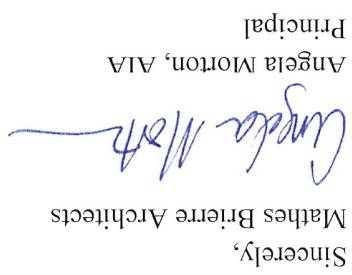 Sincerely,
Mathes Brierre Architects
Angela Morton
Angela Morton, AIA
Principal